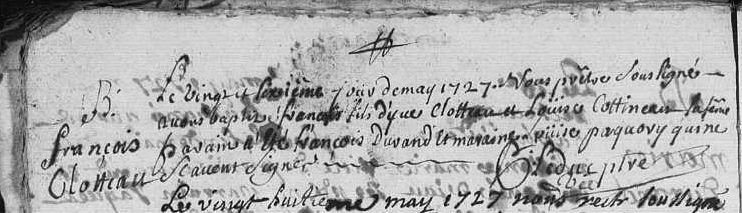 B.
françois
Clotteau
Le vingt et sixième jour de may 1727. Nous prêtre soussigné
avons baptisé françois fils d'yve Clotteau et Louise Cottineau sa féme
parain a été françois Durand et maraine paquory qui ne
scavent signer
Le vingt huitieme may 1727 nous rectr soussigné